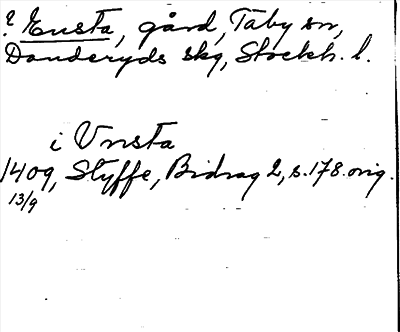 ? Ensta, gård, Täby sn,
Danderyds skg, Stockh. l.
i Vnsta
1409, Styffe, Bidrag 2, s. 178. orig.
13/9